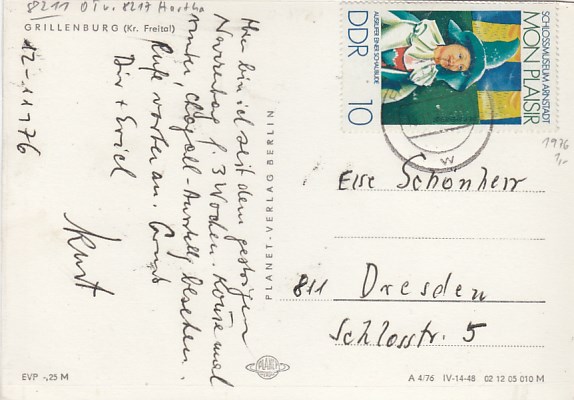 8211 OT v. 8217 Hartha
GRILLENBURG (Kr. Freital)
12-11-76
bin ich seit dem gestrigen
f. 3 Wochen. Könnte mal
Chagall-Ausstellg besehen.
Rufe vorher an. Gruß
Dir + Erich
Kurt
PLANET-VERLAG BERLIN
SCHLOSSMUSEUM ARNSTADT
MON PLAISIR
AUSRUFER EINER SCHAUBUDE
DDR
10
1976
1,-
Else Schönherr
811 Dresden
Schlosstr. 5
PLANET
EVP -,25 M
A 4/76 IV-14-48 02 12 05 010 M